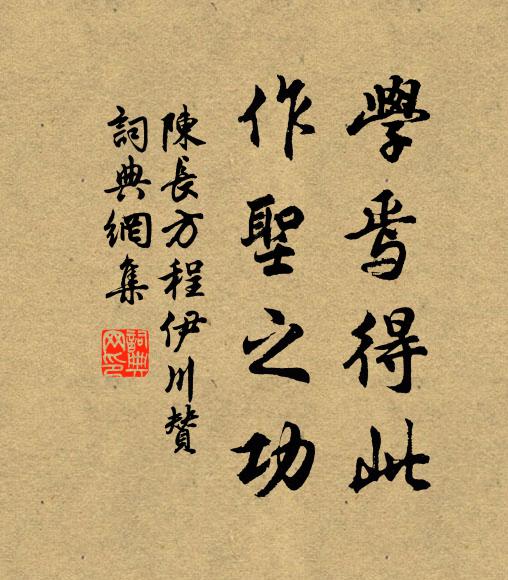 學焉得此
作聖之功
陳長方程伊川贊
詞典網集
詞典网印